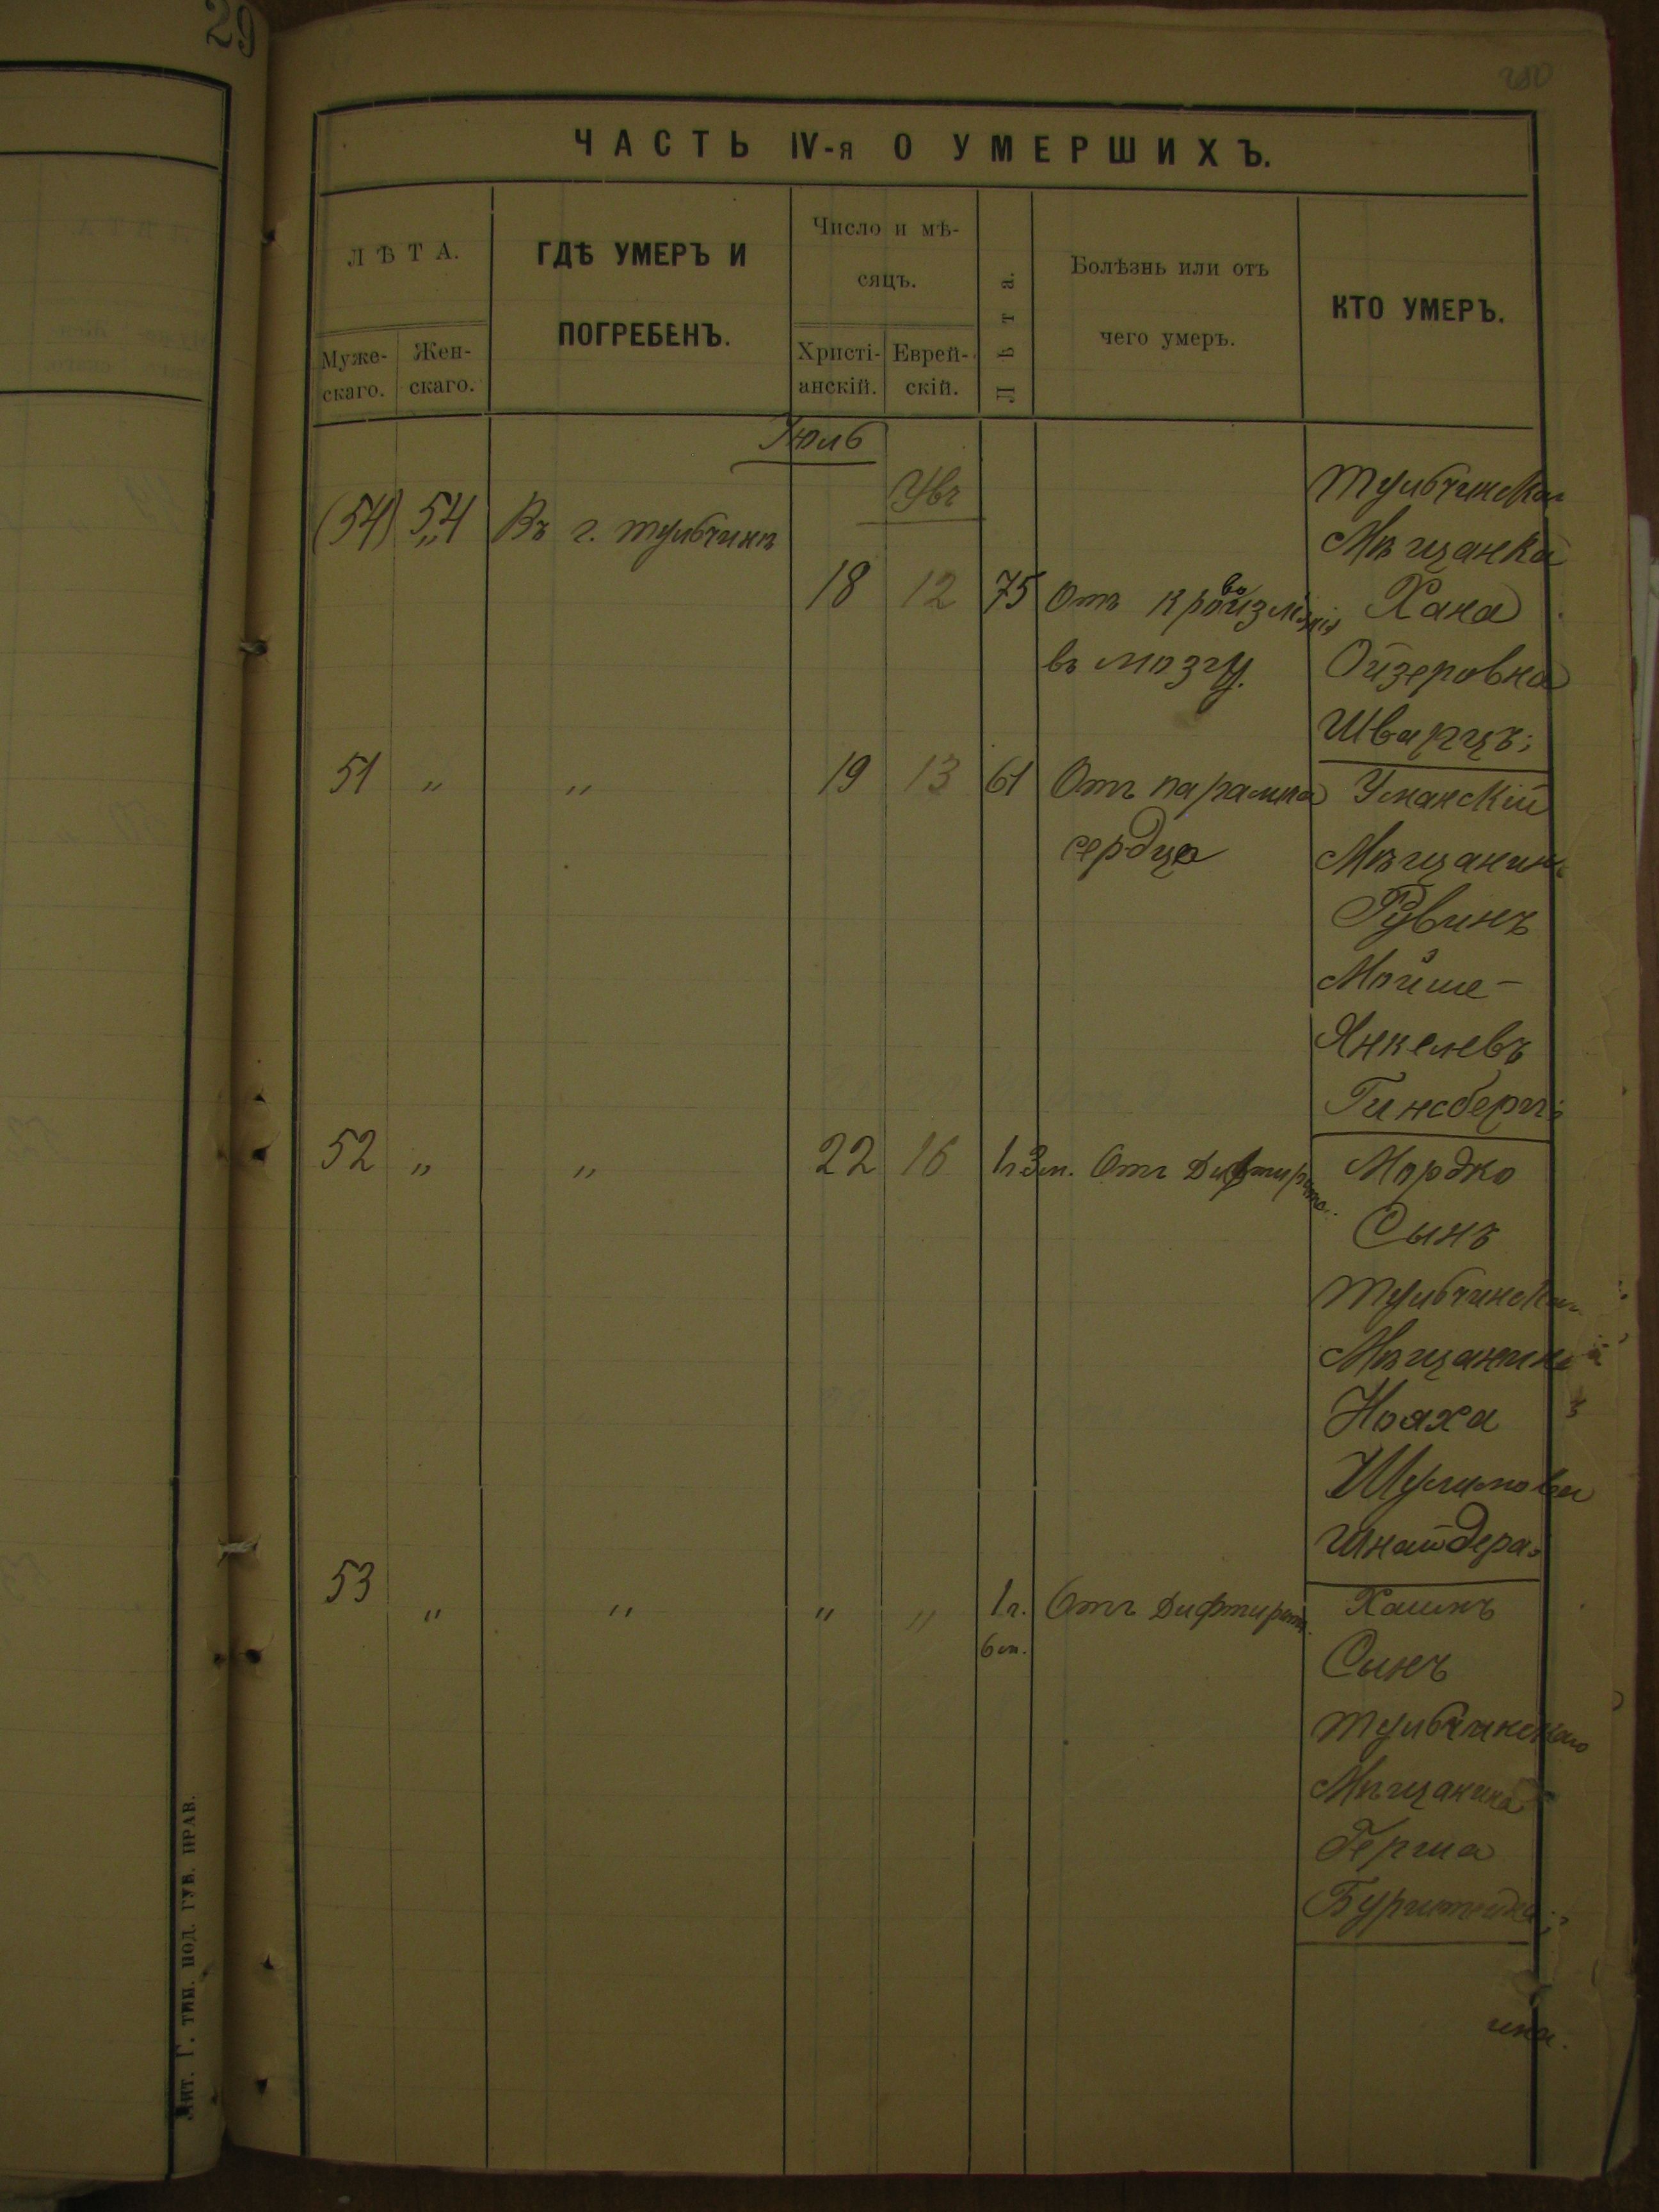 29
ЧАСТЬ IV-я О УМЕРШИХЪ.
ЛѢТА.
Муже-
скаго.
Жен-
скаго.
ГДѢ УМЕРЪ И
ПОГРЕБЕНЪ.
Число и мѣ-
сяцъ.
Христі-
анскій.
Еврей-
скій.
Лѣта.
Болѣзнь или отъ
чего умеръ.
КТО УМЕРЪ.
Июль
(54) 54 Въ г. Тульчинѣ
18 12 75 Отъ кровоизліянія
въ мозгу.
Мѣщанка
Хана
Ойзеровна
Шварцъ;
51 " " 19 13 61 Отъ
сердца
Уманскій
Мѣщанинъ
Рувинъ
Мойше-
Янкелевъ
Гинсбергъ;
52 " " 22 16 1 г 3 м. Отъ Дифтирита.
Мордко
Сынъ
Мѣщанина
Нояха
Шулимова
Шнайдера.
53 " " " " 1 г.
6 м.
Отъ Дифтирита.
Хаимъ
Сынъ
Тульчинскаго
Мѣщанина
Герша
Лит. Г. тип. под. губ. прав.